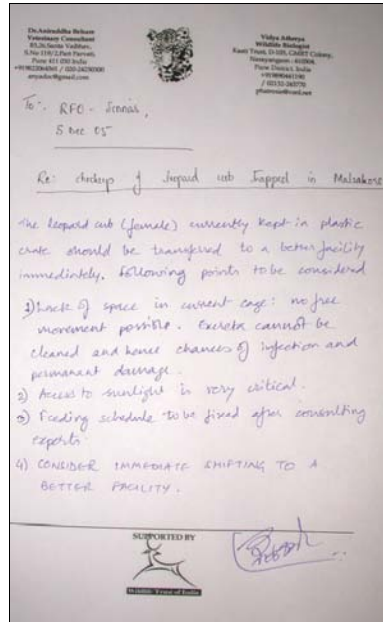 Dr.Aniruddha Belsare
Veterinary Consultant
Pune 411 030 India
Vidya Athreya
Wildlife Biologist
Kaati Trust, D-103, GMRT Colony,
Narayangaon - 410504,
Pune District, India
To:- RFO - Sinnar,
5 Dec 05
Re: checkup of leopard cub trapped in Malsakore
The leopard cub (female) currently kept in plastic
crate should be transferred to a better facility
immediately. Following points to be considered
1) Lack of space in current cage: no free
movement possible. Excreta cannot be
cleaned and hence chances of infection and
permanant damage.
2) Access to sunlight is very critical.
3) Feeding schedule to be fixed after consulting
experts.
4) CONSIDER IMMEDIATE SHIFTING TO A
BETTER FACILITY.
SUPPORTED BY
Wildlife Trust of India